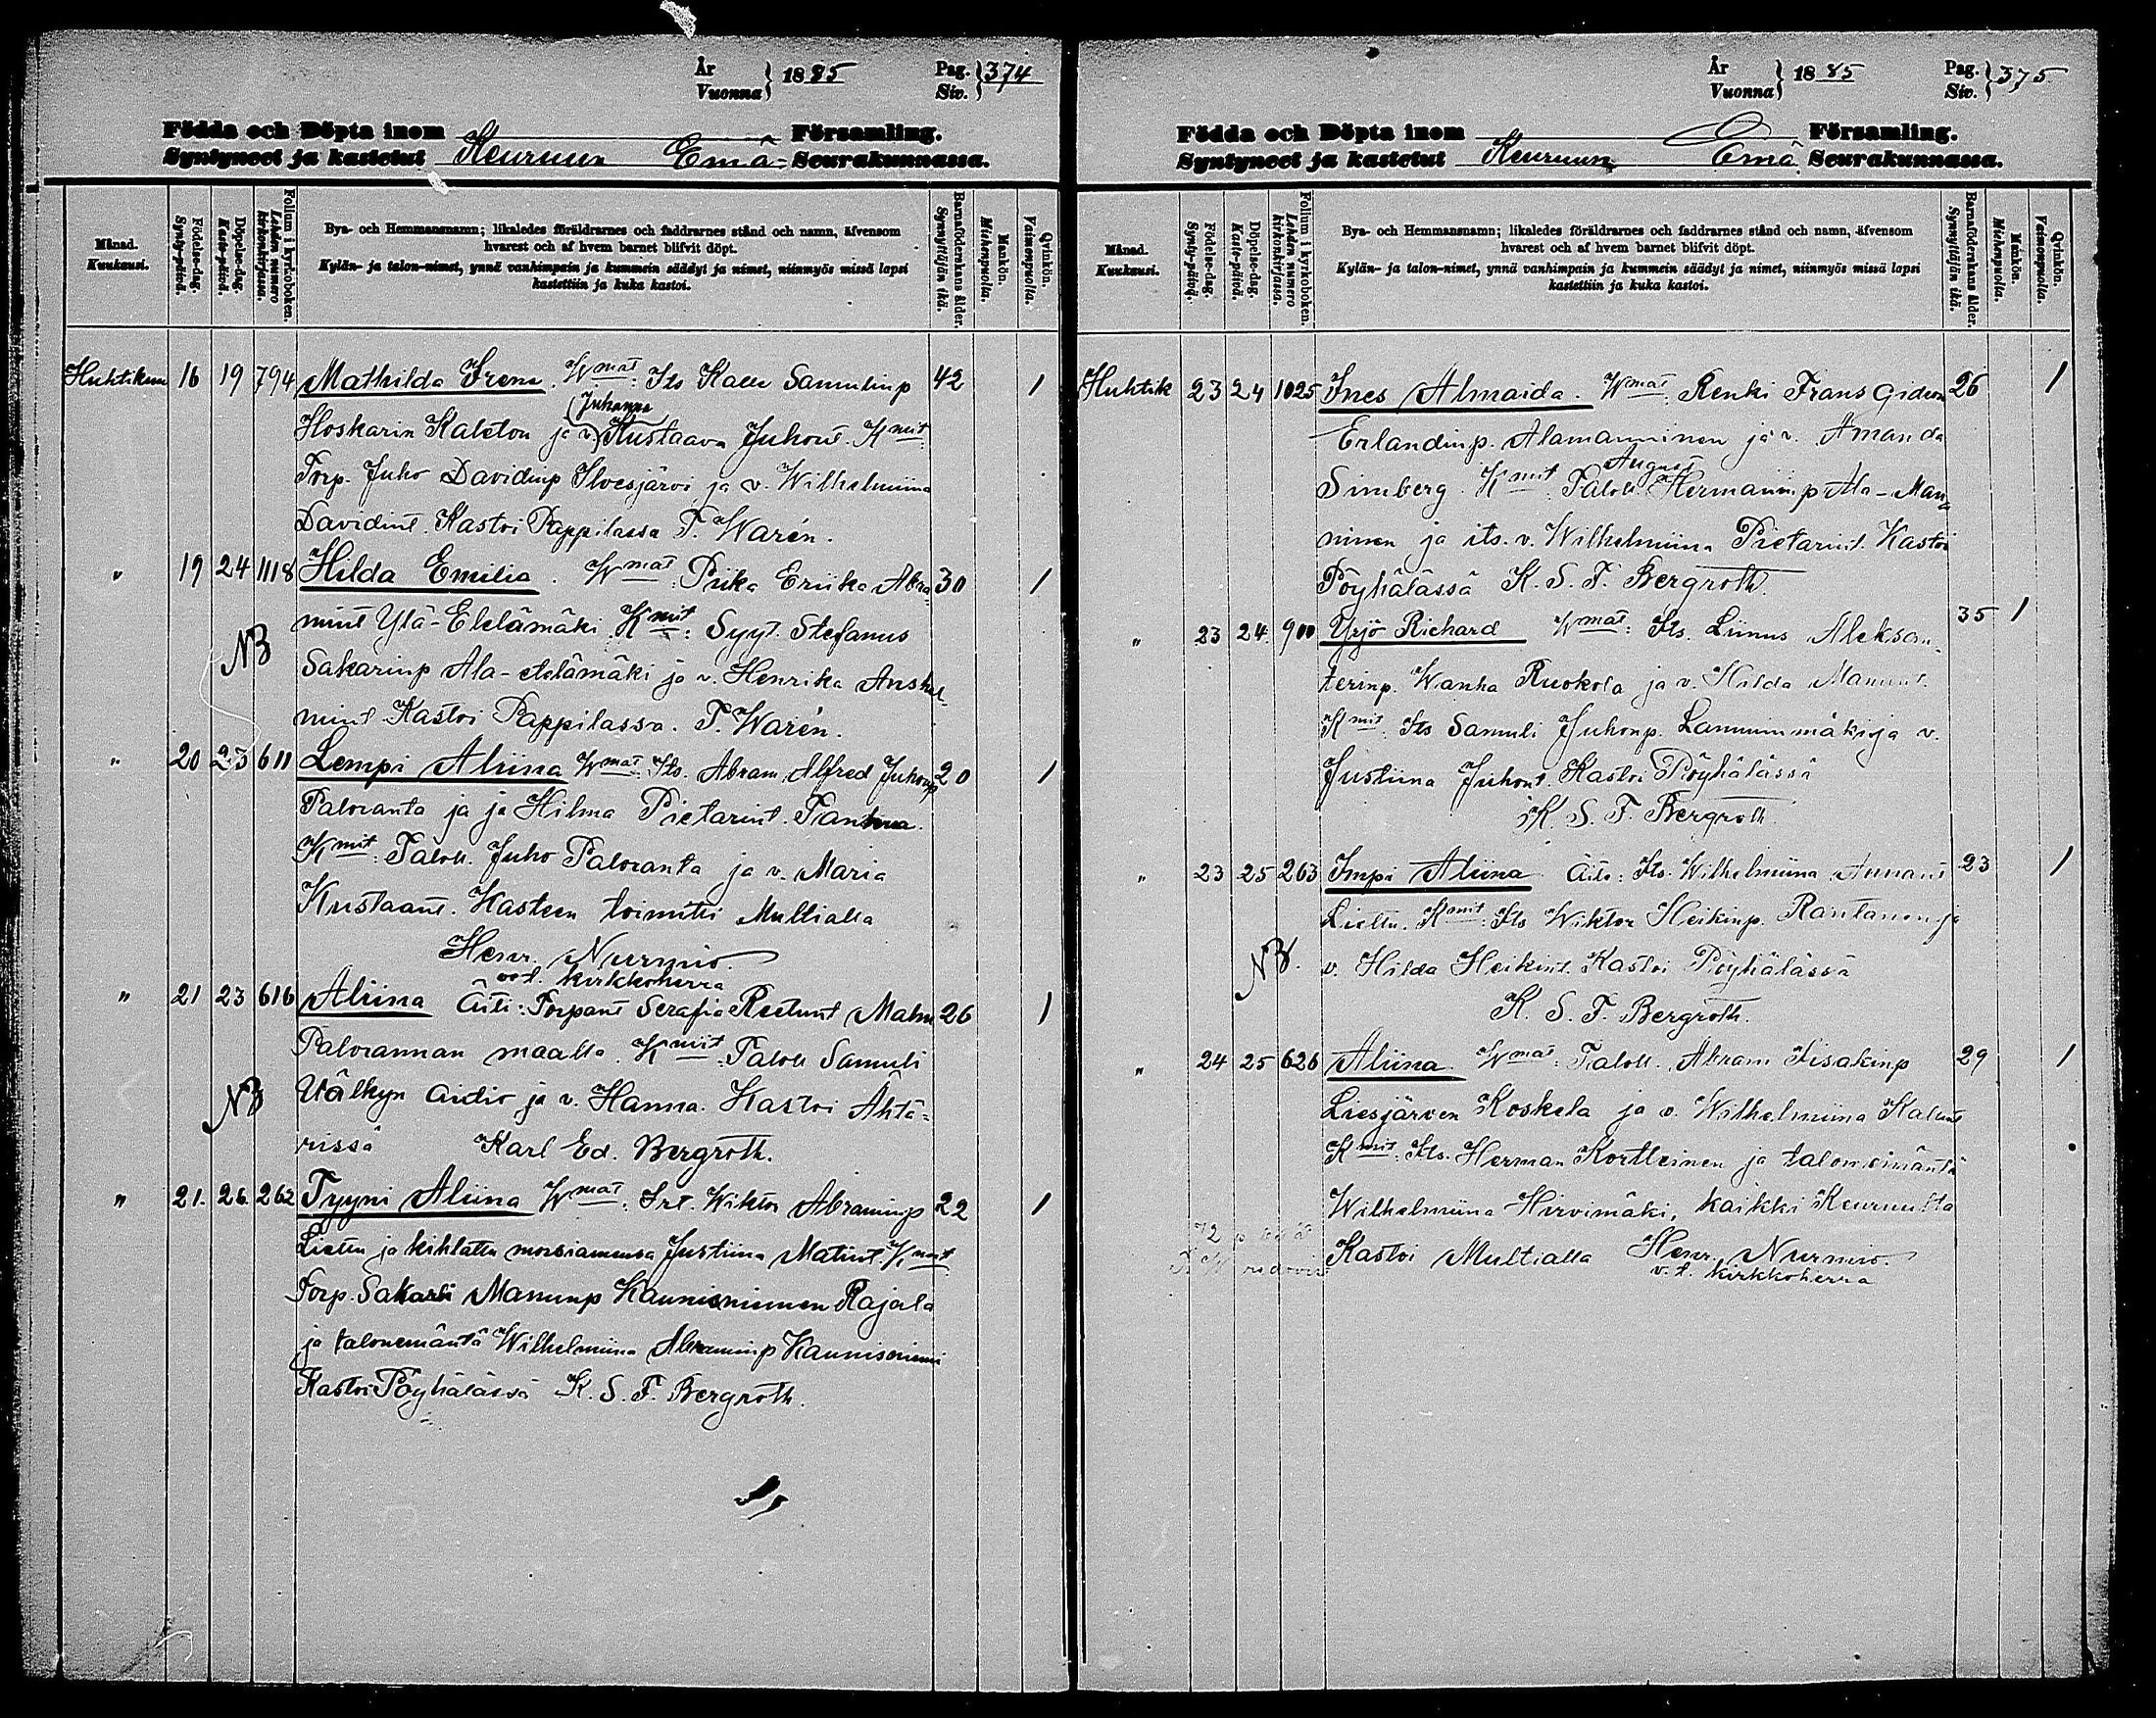 År
Vuonna } 1885
Pag.
Siv. } 374
Födda och Döpta inom Församling.
Syntyneet ja kastetut Keuruun Emä- Seurakunnassa.
Månad.
Kuukausi.
Födelse-dag.
Synty-päivä.
Döpelse-dag.
Kaste-päivä.
Folium i kyrkoboken.
Lehden numero kirkonkirjassa.
Bya- och Hemmansnamn; likaledes föräldrarnes och faddrarnes stånd och namn, äfvensom
hvarest och af hvem barnet blifvit döpt.
Kylän- ja talon-nimet, ynnä vanhimpain ja kummein säädyt ja nimet, niinmyös missä lapsi
kastettiin ja kuka kastoi.
Barnaföderskans ålder.
Synnyttäjän ikä.
Mankön.
Miehenpuolta.
Qvinkön.
Vaimonpuolta.
Huhtikuu 16 19 794 Mathilda Irene. Wmat: Its Kalle Samulinp 42 1
Juhanna
Hoskarin Kaleton ja v. Kustaava Juhont. Kmit:
Torp. Juho Davidinp Ilvesjärvi ja v. Wilhelmiina
Davidint. Kastoi Pappilassa T. Warén.
" 19 24 1118 Hilda Emilia. Wmat: Piika Eriika Abra- 30 1
mint Ylä-Elelämäki. Kmit: Syyt. Stefanus
NB Sakarinp Ala-elelämäki ja v. Henrika Anshel-
mint Kastoi Pappilassa. T. Warén.
" 20 23 611 Lempi Aliina Wmat: Its. Abram Alfred Juhonp 20 1
Paloranta ja ja Hilma Pietarint. Tantma.
Kmit: Talol. Juho Paloranta ja v. Maria
Kustaant. Kasteen toimitti Multialla
Henr. Nurmio.
v.t. kirkkoherra
" 21 23 616 Aliina Äiti: Torpant Serafia Reetunt Malm 26 1
Palorannan maalla. Kmit: Talol Samuli
NB Välkyn Aidio ja v. Hanna. Kastoi Ähtä-
rissä Karl Ed. Bergroth.
" 21. 26. 262 Tyyni Aliina Wmat: Irt. Wiktor Abraminp 22 1
Liettu ja kihlattu morsiamensa Justiina Matint. Kmit
Torp. Sakari Manunp Kaunisniemen Rajala
ja talonemäntä Wilhelmiina Abraminp Kaunisniemi
Kastoi Pöyhälässä K. S. F. Bergroth.
År
Vuonna } 1885
Pag.
Siv. } 375
Födda och Döpta inom Församling.
Syntyneet ja kastetut Keuruun Emä Seurakunnassa.
Månad.
Kuukausi.
Födelse-dag.
Synty-päivä.
Döpelse-dag.
Kaste-päivä.
Folium i kyrkoboken.
Lehden numero kirkonkirjassa.
Bya- och Hemmansnamn; likaledes föräldrarnes och faddrarnes stånd och namn, äfvensom
hvarest och af hvem barnet blifvit döpt.
Kylän- ja talon-nimet, ynnä vanhimpain ja kummein säädyt ja nimet, niinmyös missä lapsi
kastettiin ja kuka kastoi.
Barnaföderskans ålder.
Synnyttäjän ikä.
Mankön.
Miehenpuolta.
Qvinkön.
Vaimonpuolta.
Huhtik 23 24 1025 Ines Almaida. Wmat. Renki Frans Gideon 26 1
Erlandinp. Alamanninen ja v. Amanda
August
Simberg. Kmit. Talol. Hermaninp Ala-Man-
ninen ja its. v. Wilhelmiina Pietarint. Kastoi
Pöyhälässä K. S. F. Bergroth.
" 23 24. 900 Yrjö Richard Wmat: Its. Liinus Aleksan- 35 1
terinp. Wanha Ruokola ja v. Hilda Manunt.
Kmit. Its Samuli Juhonp. Lamminmäki ja v.
Justiina Juhont. Kastoi Pöyhälässä
K. S. F. Bergroth.
" 23 25 263 Impi Aliina Äiti: Its. Wilhelmiina Aunant 23 1
Liettu. Kmit: Its Wiktor Heikinp. Rantanen ja
NB. v. Hilda Heikint. Kastoi Pöyhälässä
K. S. F. Bergroth.
" 24 25 626 Aliina Wmat: Talol. Abram Iisakinp 29 1
Liesjärven Koskela ja v. Wilhelmiina Kalent
Kmit: Its. Herman Kortteinen ja talon emäntä
Wilhelmiina Hirvimäki, kaikki Keuruulta
Kastoi Multialla Henr. Nurmio.
v. t. kirkkoherra